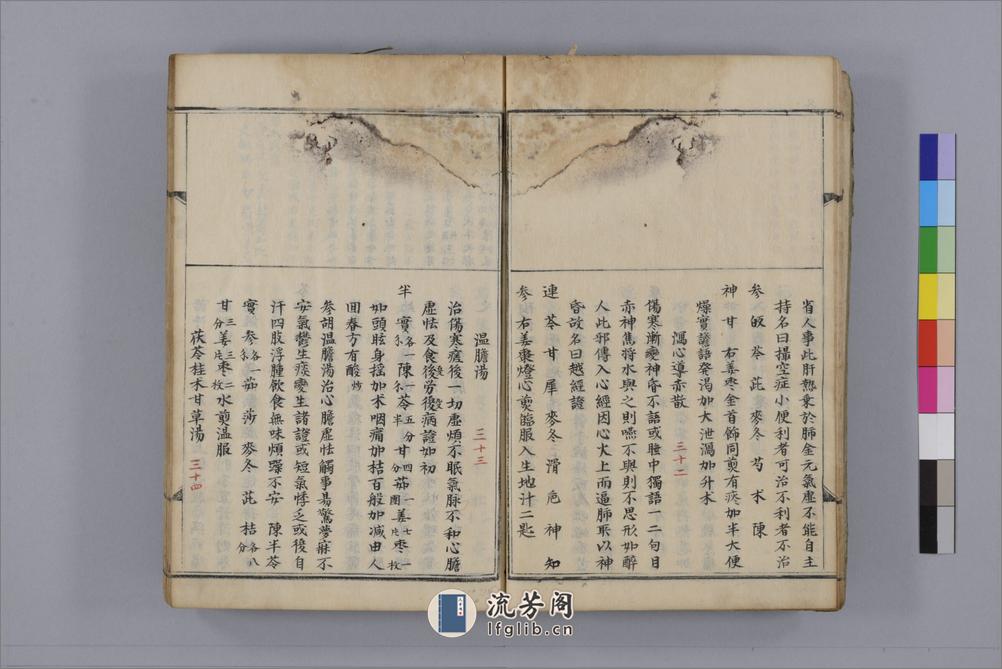 省人事此肝熱乗於肺金元氣虛不能自主
持名曰撮空症小便利者可治不利者不治
參 皈 苓 茈 麥冬 芍 朮 陳
神 甘 右姜枣金首飾同煎有痰加半大便
燥實譫語発渴加大泄瀉加升朮
瀉心導赤散 三十二
傷寒漸變神昏不語或睡中獨語一二句目
赤神焦將水與之則嚥不與則不思形如醉
人此邪傳入心經因心火上而逼肺㪽以神
昏故名曰越經證
連 苓 甘 犀 麥冬 滑 梔 神 知
參 右姜棗燈心煎臨服入生地汁三匙
温膽湯 三十三
治傷寒瘥後一切虛煩不眠氣脉不和心膽
虛怯及食後勞復病證如初
半 實各一陳一苓五分甘四分茹一團姜七片枣一枚
如頭眩身揺加朮咽痛加桔百般加減由人
回春方有酸炒
參胡温膽湯治心膽虛怯觸事易驚夢寐不
安氣鬱生痰變生諸證或短氣悸乏或後自
汗四肢浮腫飲食無味煩躁不安 陳半苓
實 參各一茹 莎 麥冬 茈 桔各八分
甘三分姜三片枣二枚水煎温服
茯苓桂朮甘草湯 三十四
流芳阁
lfglib.cn